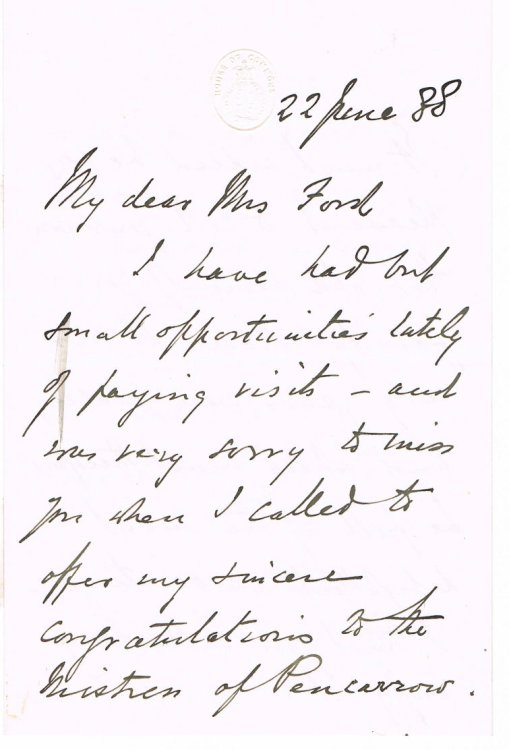 HOUSE OF COMMONS
22 June 88
My dear Mrs Ford
I have had but
small opportunities lately
of paying visits – and
was very sorry to miss
you when I called to
offer my sincere
congratulations to the
Mistress of Pencarrow.